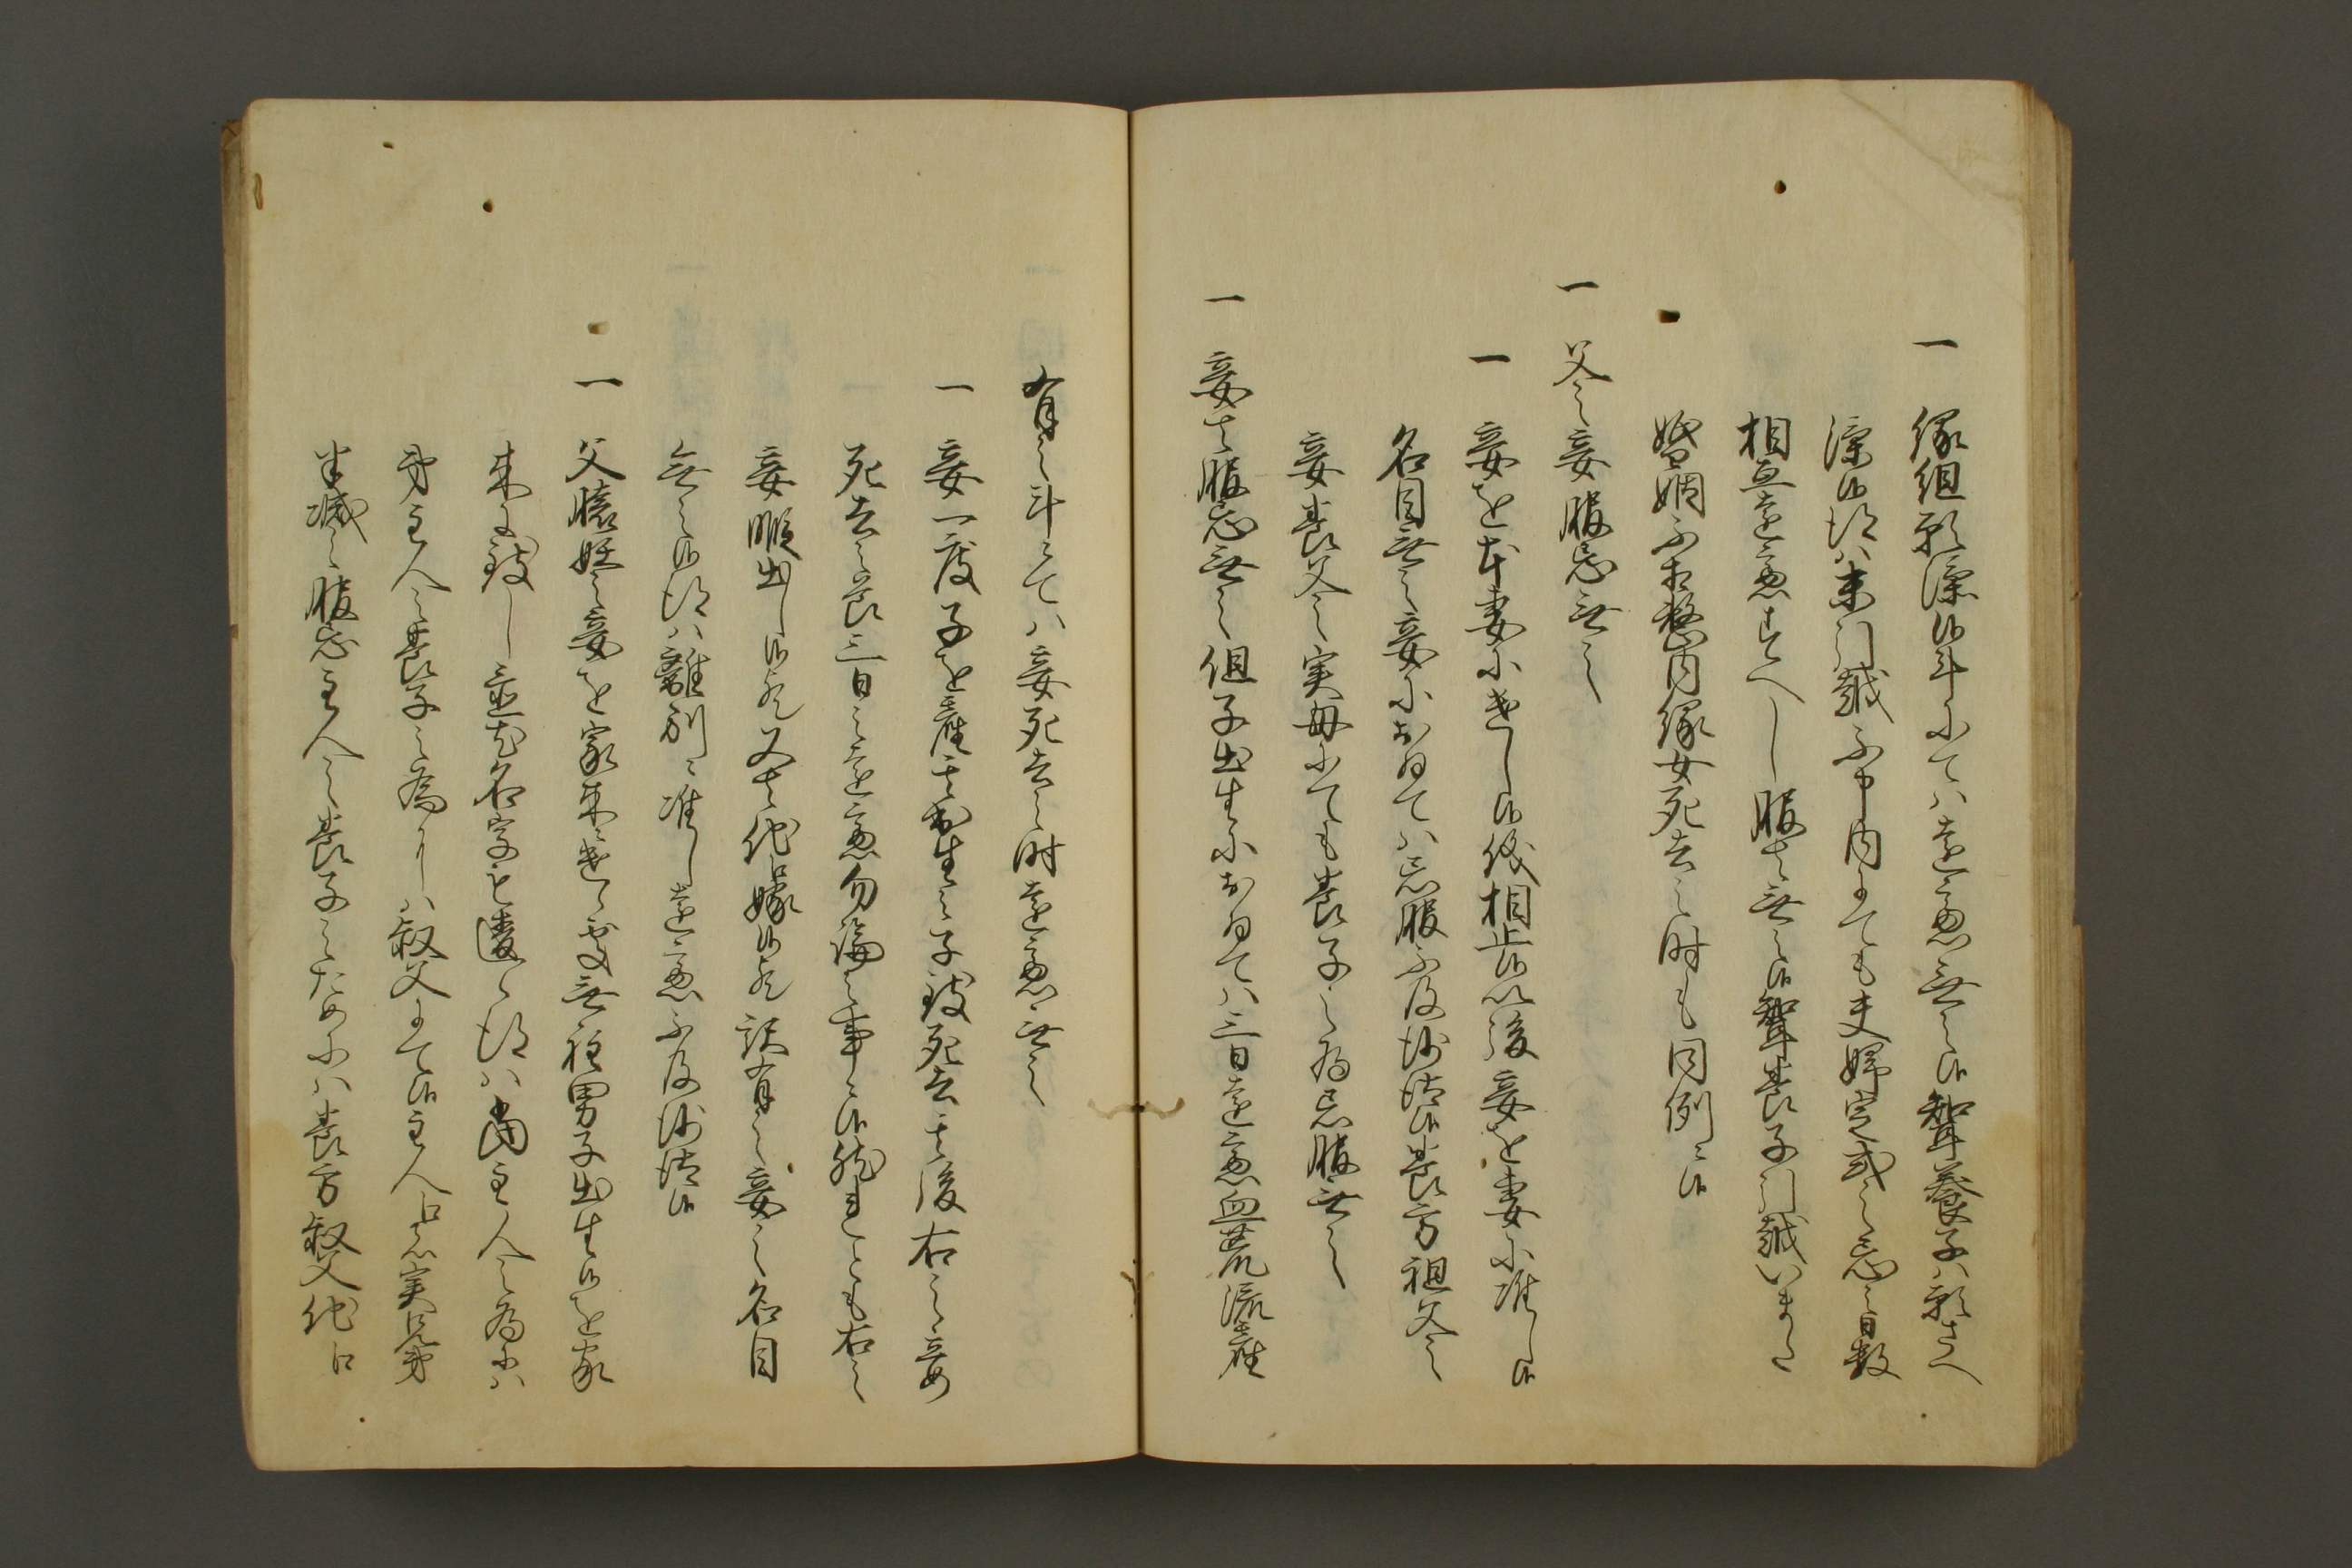 一 縁組願済候斗ニ而ハ遠慮無之候聟養子ハ願さへ
済候得ハ未引越不申内ニ而も夫婦定式之忌之日数
相互遠慮すへし服ハ無之候聟養子引越いまた
婚姻不相整内縁女死去之時も同例ニ候
一 父之妾服忌無之
一 妾を本妻にいたし候儀相止候以後妾を妻に准し候
名目無之妾におゐてハ忌服不及沙汰候養方祖父之
妾養父之実母にても養子之為忌服無之
一 妾は服忌無之但子出生におゐてハ三日遠慮血荒流産
有之斗ニ而ハ妾死去之時遠慮無之
一 妾一度子を産其出生之子致死去其後右之妾も
死去之節三日之遠慮勿論之事ニ候然れとも右之
妾暇出し候歟又は他江嫁候歟訳有之妾之名目
無之候得ハ離別ニ准し遠慮不及沙汰候
一 父懐妊之妾を家来に遣し無程男子出生候を家
来に致し並に名字も遣候得ハ当主人之為にハ
弟主人之養子之為にハ叔父ニ而候主人江は実兄弟
半減之服忌主人之養子之ためにハ養方叔父他江